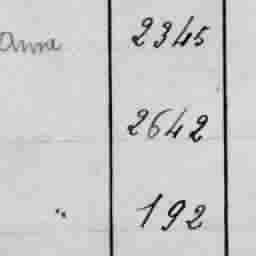 Anna 2345
2642
" 192